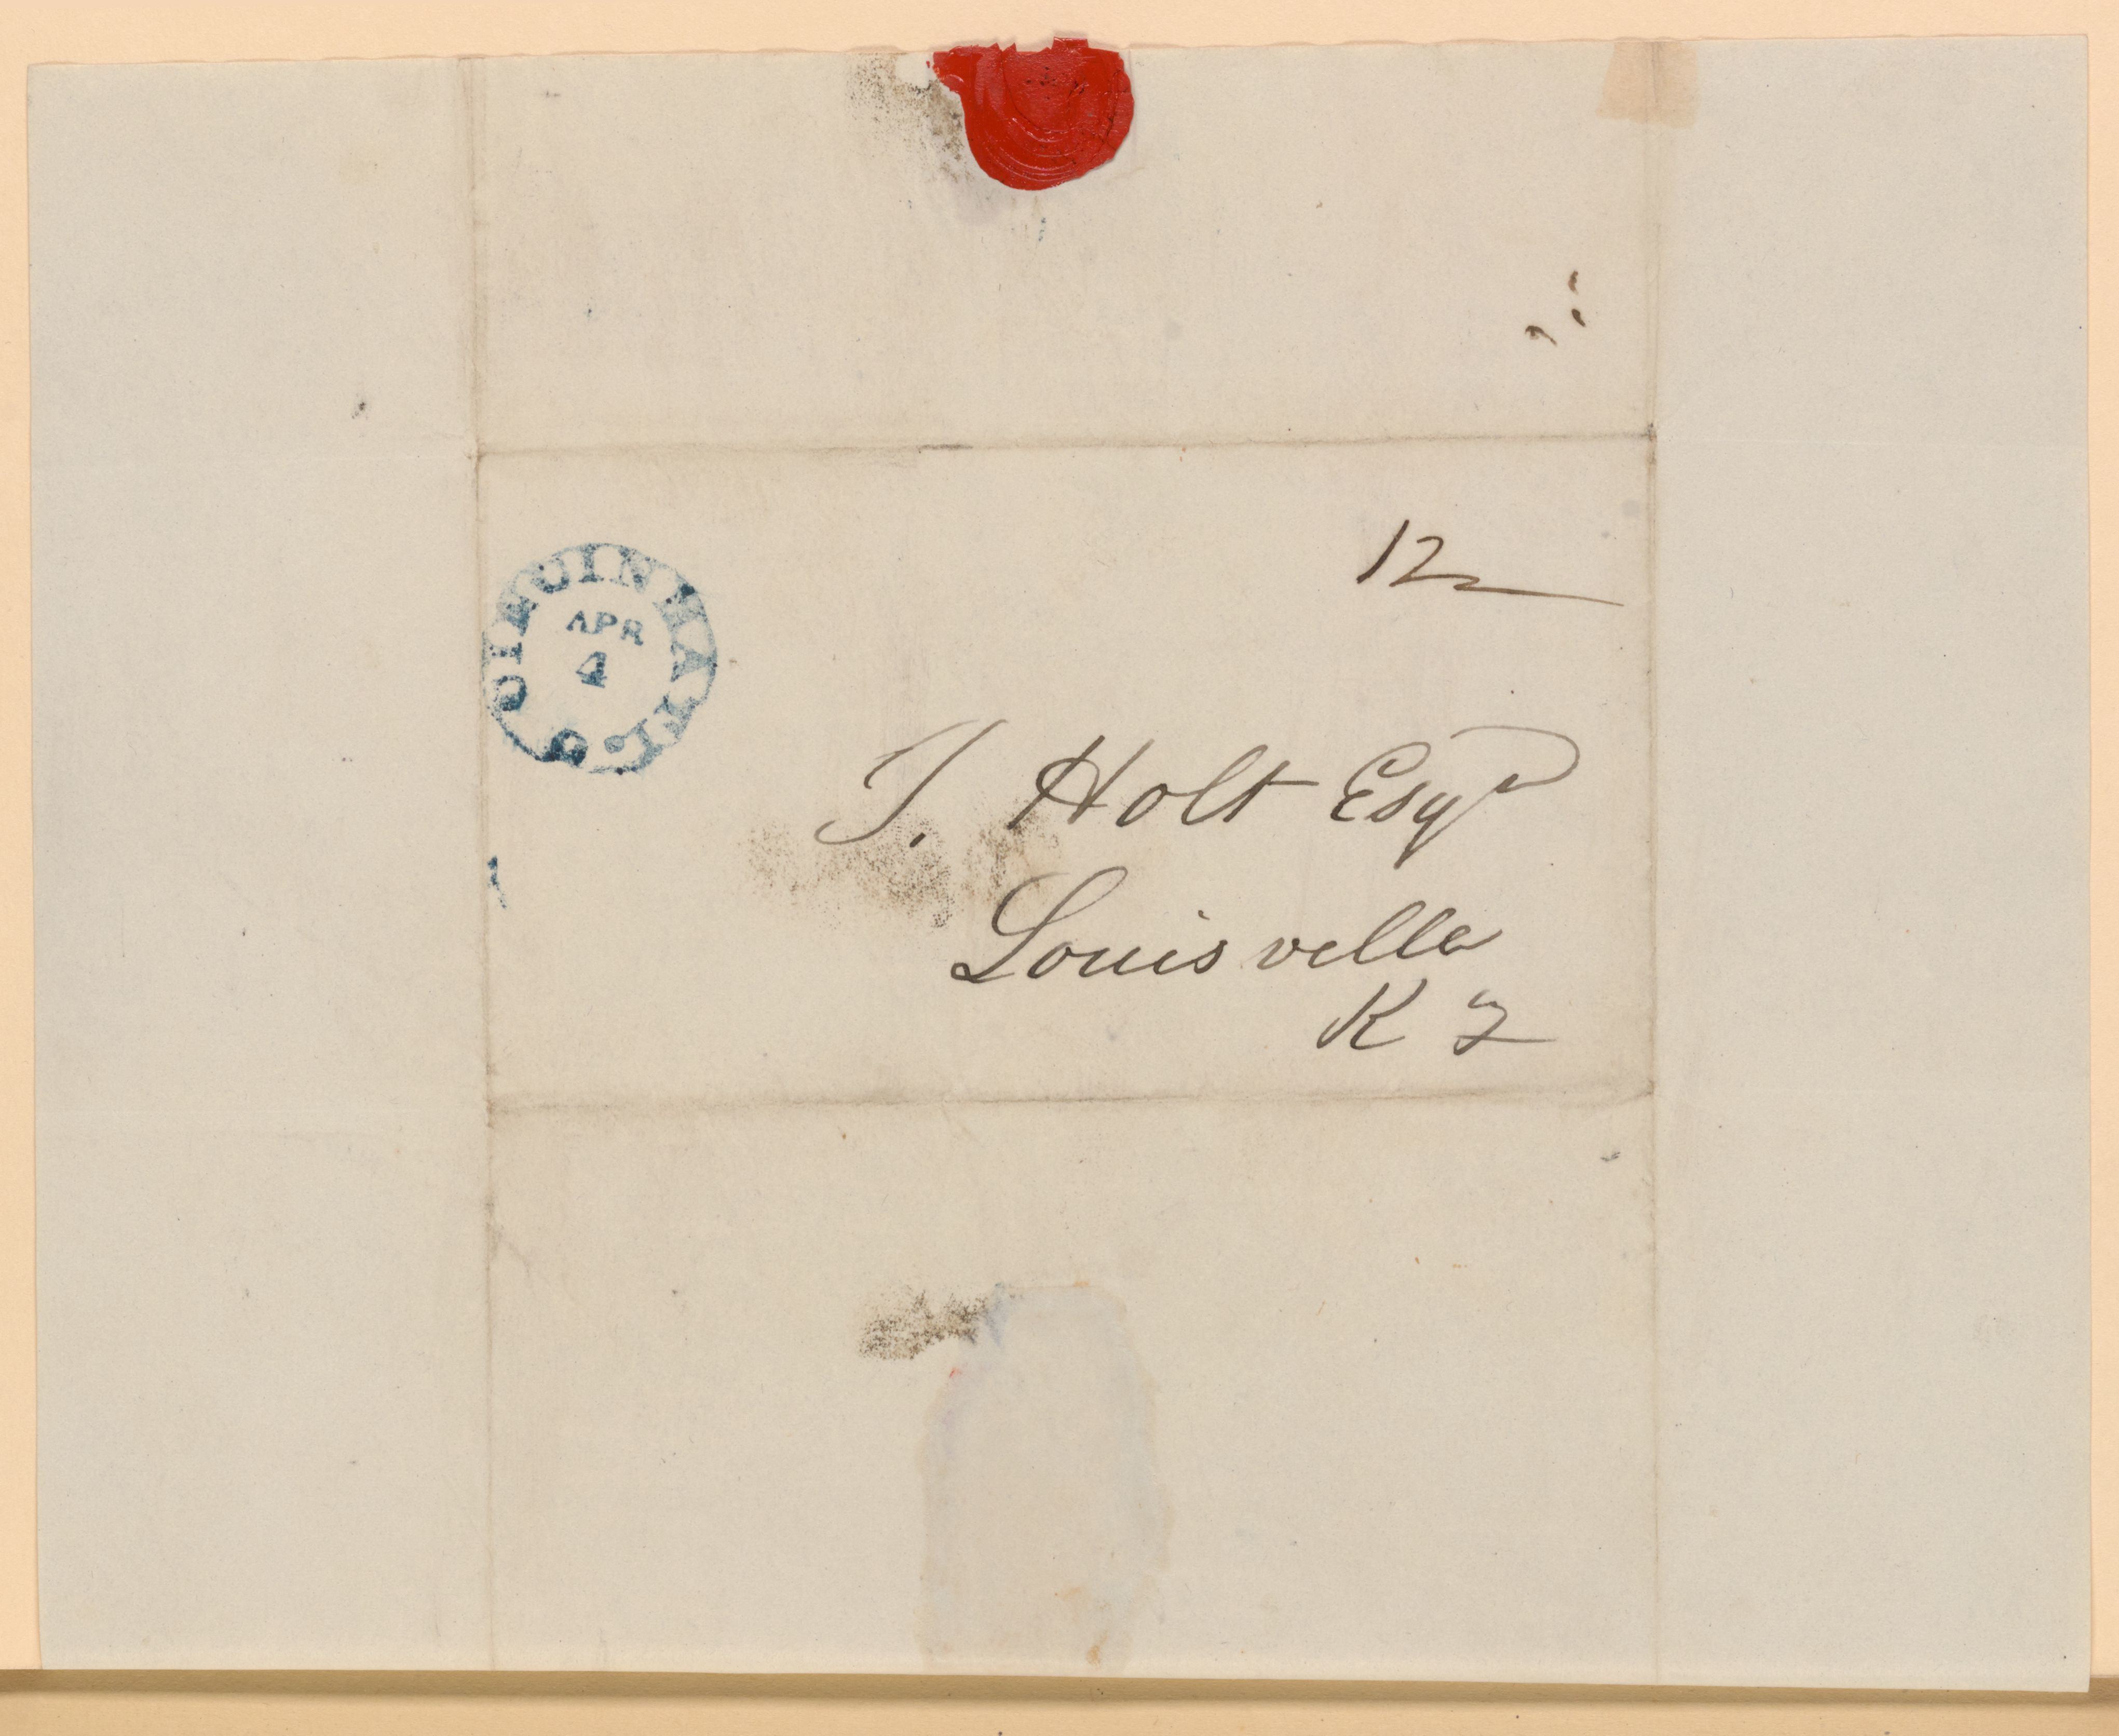 12
CINCINNATI. O
APR
4
J. Holt Esqr
Louisville
Ky